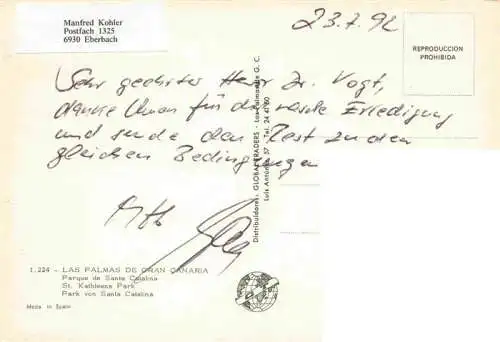 Manfred Kohler
Postfach 1325
6930 Eberbach
23.7.92
REPRODUCCION
PROHIBIDA
Sehr geehrter Herr Dr. Vogt,
danke Ihnen für die rasche Erledigung
und sende den Rest zu den
gleichen Bedingungen
Mfg
Distribuidores: GLOBAL TRADERS - Las Palmas de G. C.
Luis Antúnez, 57 - Tel. 24 41 90
1.224 - LAS PALMAS DE GRAN CANARIA
Parque de Santa Catalina
St. Kathleens Park
Park von Santa Catalina
Made in Spain